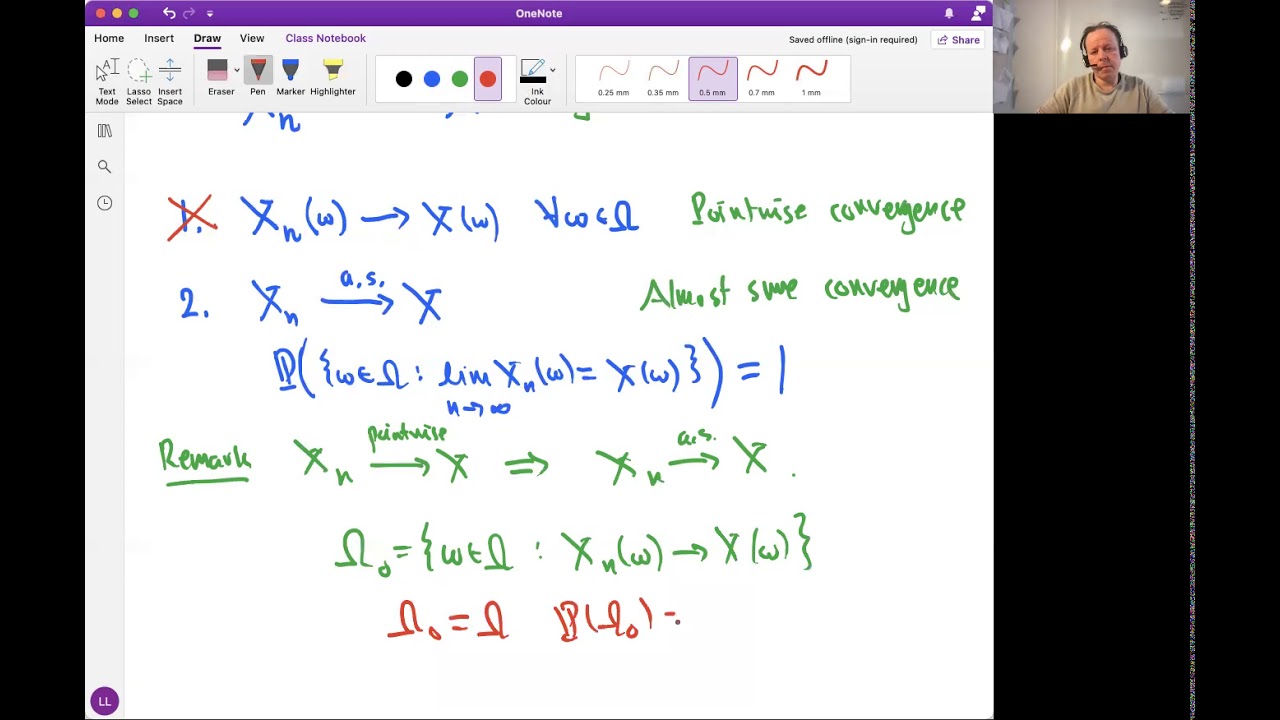 OneNote
Home Insert Draw View Class Notebook
Saved offline (sign-in required) Share
Text Mode
Lasso Select
Insert Space
Eraser
Pen
Marker
Highlighter
Ink Colour
0.25 mm 0.35 mm 0.5 mm 0.7 mm 1 mm
Xₙ
1. Xₙ(ω) → X(ω) ∀ω∈Ω Pointwise convergence
2. Xₙ →^{a.s.} X Almost sure convergence
ℙ({ω∈Ω : lim_{n→∞} Xₙ(ω) = X(ω)}) = 1
Remark Xₙ →^{pointwise} X ⇒ Xₙ →^{a.s.} X.
Ω₀ = {ω∈Ω : Xₙ(ω) → X(ω)}
Ω₀ = Ω ℙ(Ω₀) =
LL